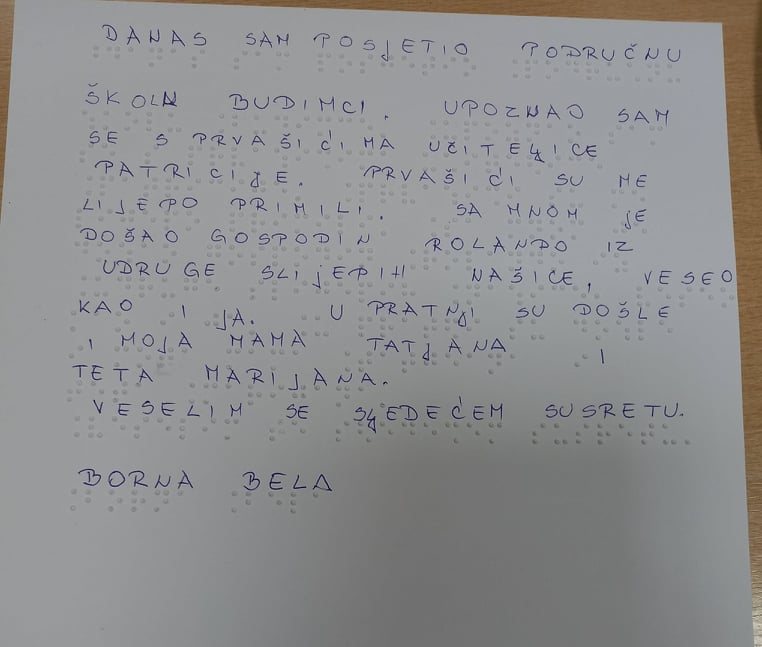 DANAS SAM POSJETIO PODRUČNU
ŠKOLU BUDIMCI. UPOZNAO SAM
SE S PRVAŠIĆIMA UČITELJICE
PATRICIJE. PRVAŠIĆI SU ME
LIJEPO PRIMILI. SA MNOM JE
DOŠAO GOSPODIN ROLANDO IZ
UDRUGE SLIJEPIH NAŠICE, VESEO
KAO I JA. U PRATNJI SU DOŠLE
I MOJA MAMA TATJANA I
TETA MARIJANA.
VESELIM SE SLJEDEĆEM SUSRETU.
BORNA BELA